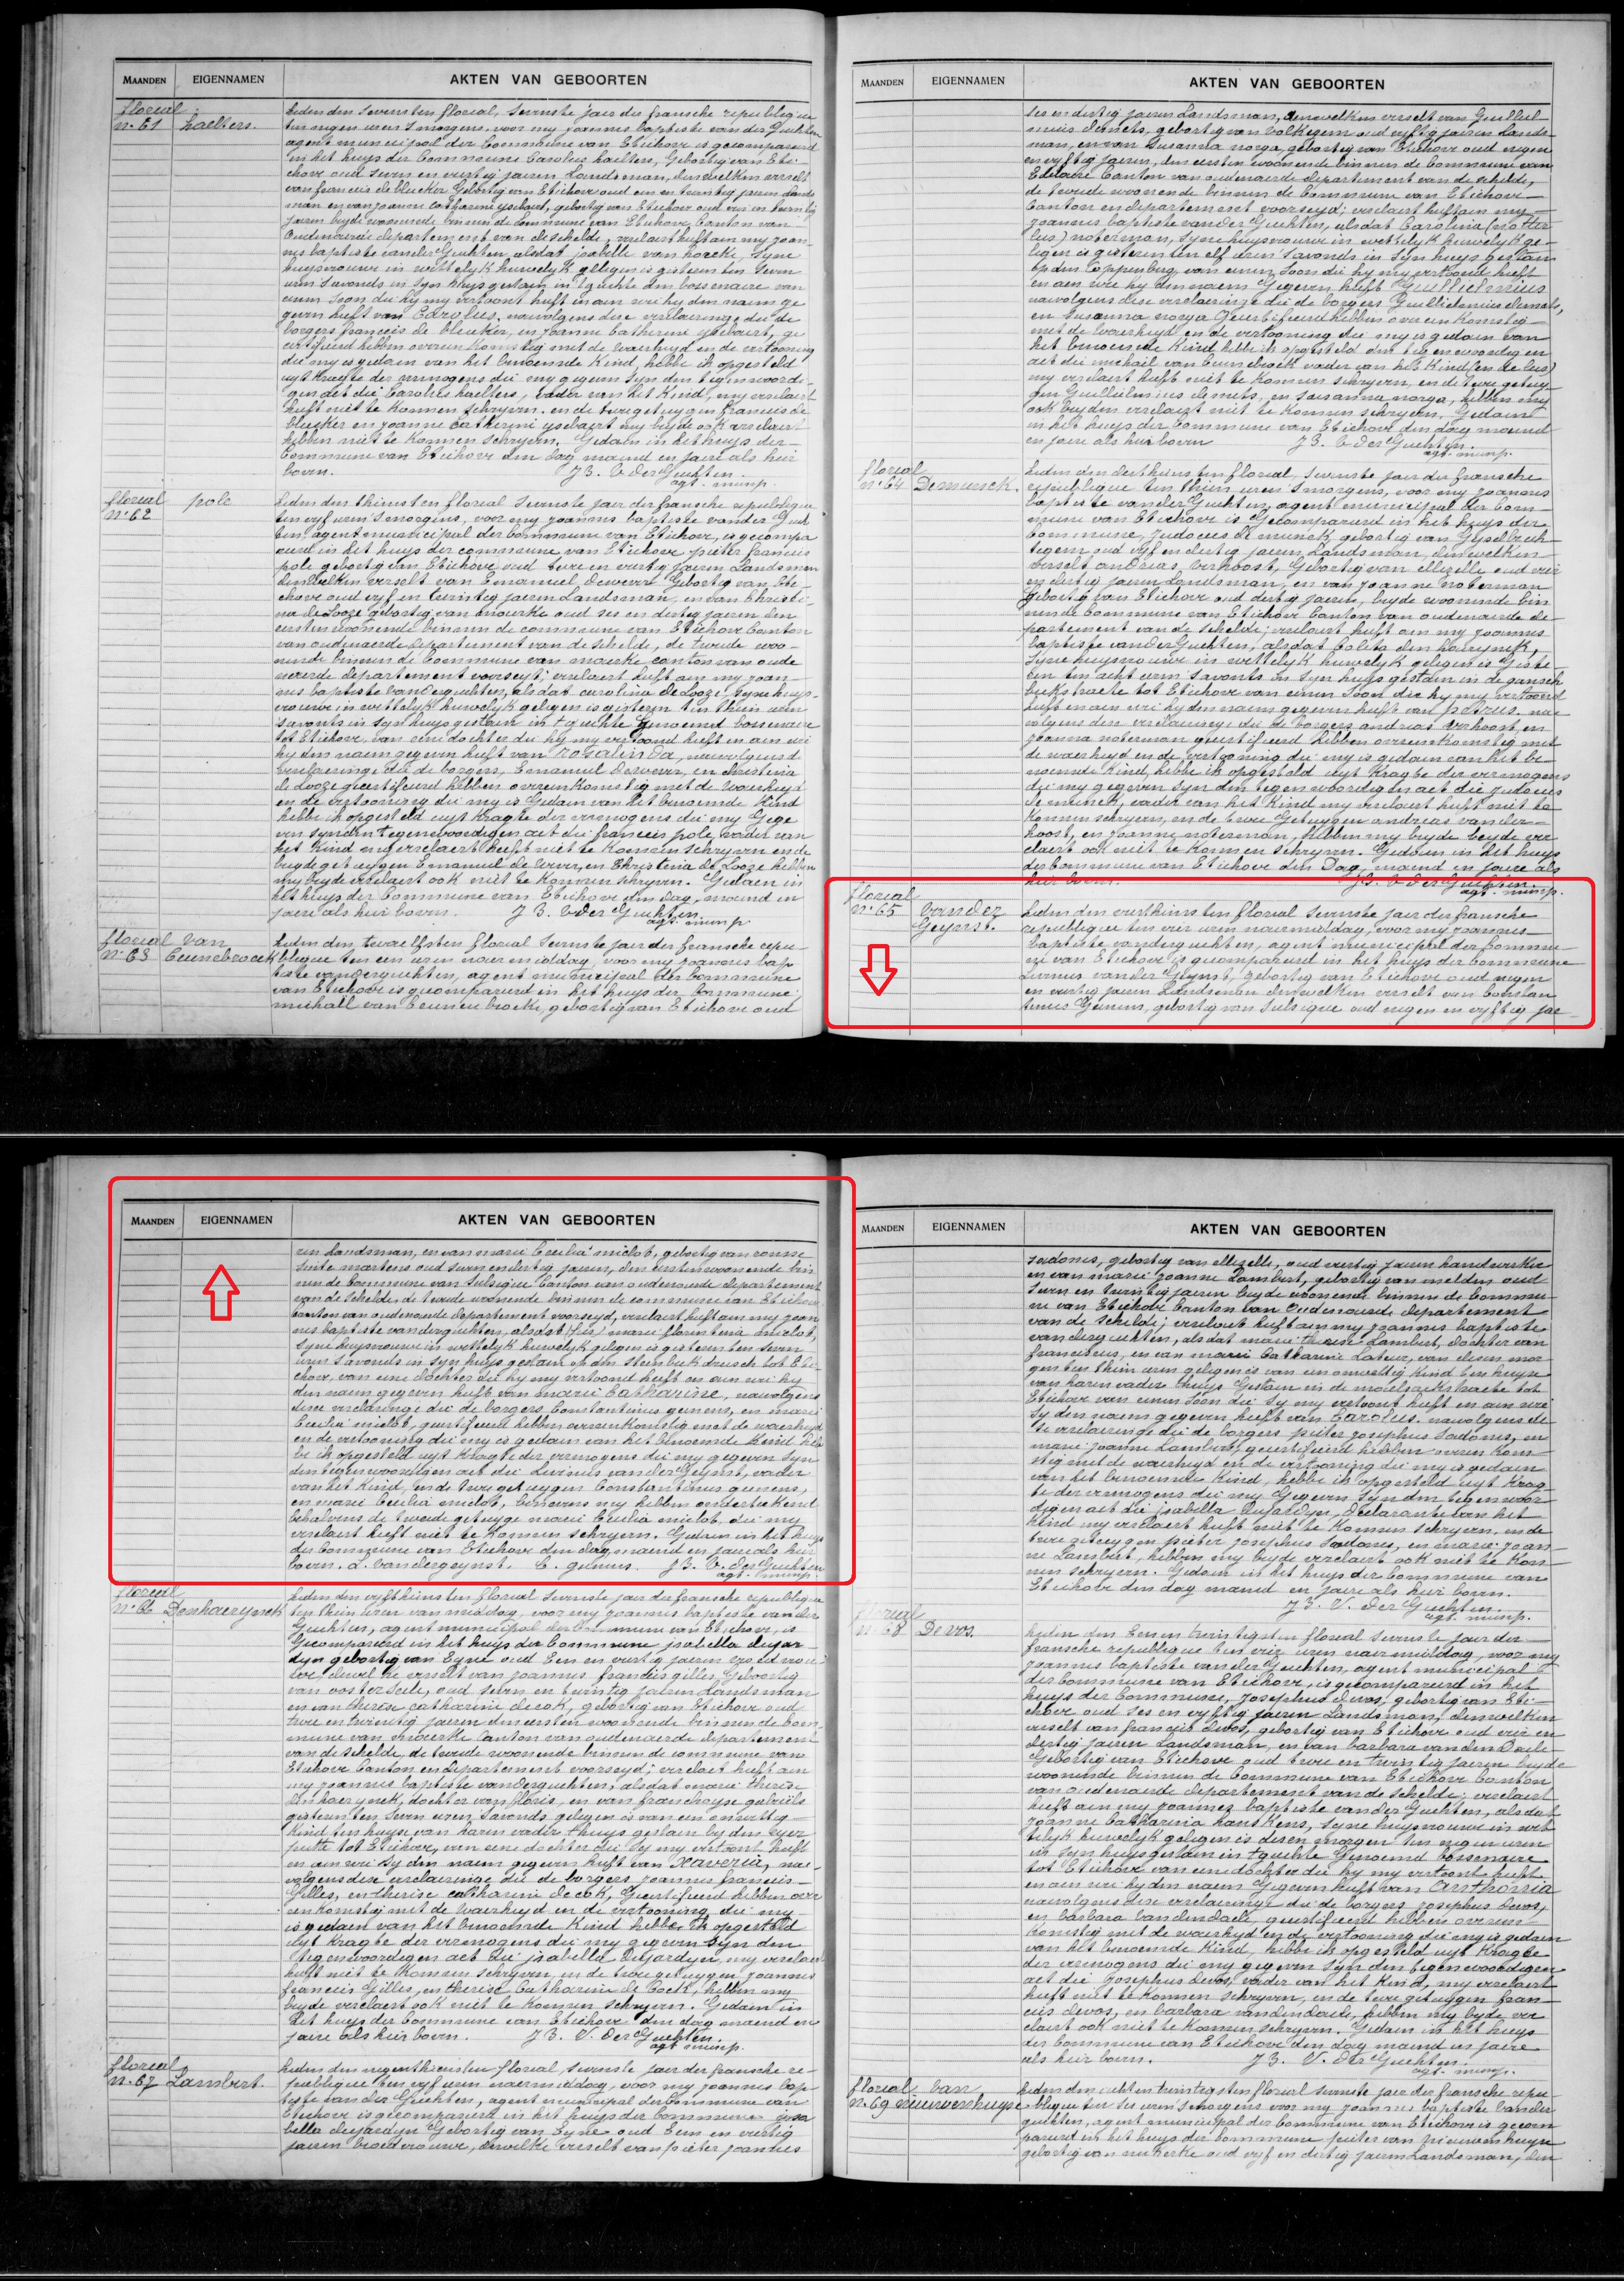 MAANDEN EIGENNAMEN AKTEN VAN GEBOORTEN
floreal
n: 61 haelters.
heden den sevensten floreal, sevenste jaer der fransche republique
ten negen uren s morgens, voor my joannes baptiste van der Guchten
agent municipael der Commune van Etichove is gecompareerd
in het huys der Commune Carolus haelters, Gebortig van Eti-
chove oud seven en viertig jaeren Landsman, denwelken verselt
van francis de bleeker Gebortig van Etichove oud een en twintig jaeren Lands
man en van joanne Catharine yselaert, gebortig van Etichove oud vier en twintig
jaeren beyde woonende binnen de Commune van Etichove Canton van
Oudenaerde departement van de schelde, verclaert heeft aen my joan-
nes baptiste vander Guchten alsdat isabelle van hoecke, syne
huysvrouwe in wettelyk huwelyk gelegen is gisteren ten seven
uren s'avonds in syn huys gestaen in t'guchte den bossenaere van
eenen soon die hy my vertoont heeft en aen wie hy den naem ge
geven heeft van Carolus, navolgens dese verclaeringe die de
borgers francois de bleeker, en joanne Catharine yselaert, ge
certifieerd hebben overeen komstig met de waerheyd en de vertooning
die my is gedaen van het benoemde Kind, hebbe ik opgesteld
uyt kragte der vermogens die my gegeven syn den tegenwoordi-
gen act die Carolus haelters, vader van het Kind, my verclaert
heeft niet te konnen schryven, en de twee getuygen francois de
bleeker en joanne Catharine yselaert my beyde ook verclaert
hebben niet te konnen schryven, Gedaen in het huys der
Commune van Etichove den dag maend en jaere als hier
boven. J B. V der Guchten.
agt. munp.
floreal
n: 62 pole
heden den thiensten floreal sevenste jaer der fransche republique
ten vyf uren s'morgens, voor my joannes baptiste vander Guch
ten, agent municipael der Commune van Etichove, is gecompa
reerd in het huys der commune van Etichove pieter francies
pole gebortig van Etichove oud twee en viertig jaeren Landsman
den welken verselt van Emanuel dewever Gebortig van Eti-
chove oud vyf en twintig jaeren Landsman, en van Christi-
na de Looze gebortig van mourke oud ses en dertig jaeren den
eersten woonende binnen de commune van Etichove Canton
van oudenaerde departement van de schelde, de tweede woo-
nende binnen de Commune van mourke canton van oude
naerde departement voorseyt; verclaert heeft aen my joan-
nes baptiste vanderguchten, als dat carolina de Looze, syne huys-
vrouwe in wettelyk huwelyk gelegen is gisteren ten thien uren
savonts in syn huys gestaen in t guchte genoemd bossenaere
tot Etichove, van eene dochter die hy my vertoond heeft en aen wie
hy den naem gegeven heeft van Rosalinda, navolgens de
verclaeringe die de borgers, Emanuel Dewever, en christina
de Looze gecertifieerd hebben overeenkomstig met de waerheyd
en de vertooning die my is Gedaen van het benoemde Kind
hebbe ik opgesteld uyt kragte der vermogens die my Gege
ven syn den tegenwoordigen act die francies pole, vader van
het Kind my verclaert heeft niet te konnen schryven en de
beyde getuygen Emanuel de Wever, en Christina de Looze hebben
my beyde verclaert ook niet te konnen schryven. Gedaen in
het huys der Commune van Etichove den dag, maend en
jaere als hier boven. J B. V der Guchten.
agt. munp.
floreal van
n: 63 Ceunebroeck
heden den twaelfsten floreal sevenste jaer der fransche repu-
blique ten een uren naer middag, voor my joannes bap
tiste vanderguchten, agent municipael der Commune
van Etichove is gecompareerd in het huys der Commune
michaël van Ceunenbroeke, gebortig van Etichove oud
MAANDEN EIGENNAMEN AKTEN VAN GEBOORTEN
ses en dertig jaeren Landsman, denwelken verselt van Guilliel
mus demets, gebortig van volkegem oud vyftig jaeren Lands-
man, en van Susanna norga, gebortig van Etichove oud negen
en vyftig jaeren, den eersten woonende binnen de Commune van
Edelaere Canton van oudenaerde departement van de schelde,
de tweede woonende binnen de Commune van Etichove
Canton en departement voorseyd; verclaert heeft aen my
joannes baptiste vander Guchten, alsdat Carolina (noter
lus) noterman, syne huysvrouwe in wettelyk huwelyk ge-
legen is gisteren ten elf uren s'avonds in syn huys gestaen
op den Coppenberg van eenen soon die hy my vertoond heeft
en aen wie hy den naem Gegeven heeft Guillielmus
navolgens dese verclaeringe die de borgers Guillielmus demets,
en Susanna norga Gecertifieerd hebben overeenkomstig
met de waerheyd en de vertooning die my is gedaen van
het benoemde Kind hebbe ik opgesteld den tegenwoordigen
act die michaël van Ceunebroek vader van het Kind (en de lus)
my verclaert heeft niet te konnen schryven, en de twee getuy-
gen Guillielmus demets, en Susanna norga, hebben my
ook beyden verclaert niet te konnen schryven, Gedaen
in het huys der Commune van Etichove den dag maend
en jaere als hier boven J B. V der Guchten.
agt. munp.
floreal
n: 64 Demunck.
heden den derthiensten floreal, sevenste jaer der fransche
republique ten thien uren s'morgens, voor my joannes
baptiste vander Guchten, agent municipael der Com-
mune van Etichove is Gecompareerd in het huys der
Commune, Judocus de munck, gebortig van Gyselbrech-
tegem oud vyf en dertig jaeren, Landsman, denwelken
verselt andreas verhoost, Gebortig van elleselle oud vier
en dertig jaeren Landsman, en van joanne noterman
gebortig van Etichove oud dertig jaeren, beyde woonende bin
nen de Commune van Etichove Canton van oudenaerde de-
partement van de schelde; verclaert heeft aen my joannes
baptiste vander Guchten, alsdat Coleta den haerynck,
syne huysvrouwe in wettelyk huwelyk gelegen is Giste-
ren ten acht uren s'avonts in syn huys gestaen in de gansch
beekstraete tot Etichove van eenen soon die hy my vertoond
heeft en aen wie hy den naem gegeven heeft van petrus, na-
volgens dese verclaeringe die de borgers andreas verhoost, en
joanna noterman gecertifieerd hebben overeenkomstig met
de waerheyd en de vertooning die my is gedaen van het be-
noemde Kind, hebbe ik opgesteld uyt kragte der vermogens
die my gegeven syn den tegenwoordigen act die Judocus
de munck, vader van het Kind my verclaert heeft niet te
konnen schryven, en de twee Getuygen andreas vander-
hoost, en joanne noterman, hebben my beyde beyde ver
claert ook niet te konnen schryven. Gedaen in het huys
der Commune van Etichove den Dag, maend en jaere als
hier boven. J B. V der Guchten.
agt. munp.
floreal
n: 65 vander
Geynst.
heden den vierthiensten floreal sevenste jaer der fransche
republique ten vier uren naermiddag, voor my joannes
baptiste vanderguchten, agent municipael der Commu-
ne van Etichove is gecompareerd in het huys der Commune
Livinus vander Geynst, gebortig van Etichove oud negen
en viertig jaeren Landsman denwelken verselt van Constan
tinus Geenens, gebortig van Sulsique oud negen en vyftig jae
MAANDEN EIGENNAMEN AKTEN VAN GEBOORTEN
ren Landsman, en van marie Cecilia miclot, gebortig van ronsse
sinte martens oud seven en dertig jaeren, den eersten woonende bin
nen de Commune van Sulsique Canton van oudenaerde departement
van de schelde, de tweede woonende binnen de commune van Etichove
Canton van oudenaerde departement voorseyd, verclaert heeft aen my joan
nes baptiste vanderguchten, alsdat (lus) marie florentina miclot,
syne huysvrouwe in wettelyk huwelyk gelegen is gisteren ten seven
uren s'avonds in syn huys gestaen op den steenbeek driesch tot Eti-
chove, van eene dochter die hy my vertoond heeft en aen wie hy
den naem gegeven heeft van marie Catharine, navolgens
dese verclaeringe die de borgers Constantinus geenens, en marie
Cecilia miclot, gecertifieerd hebben overeenkomstig met de waerheyd
en de vertooning die my is gedaen van het benoemde Kind heb
be ik opgesteld uyt kragte der vermogens die my gegeven syn
den tegenwoordigen act die Livinus vander Geynst, vader
van het Kind, en de twee getuygen Constantinus geenens,
en marie Cecilia miclot, benevens my hebben onderteekend
behalvens de tweede getuyge marie Cecilia miclot die my
verclaert heeft niet te konnen schryven. Gedaen in het huys
der Commune van Etichove den dag maend en jaere als hier
boven. L. vandergeynst. C. geenens. J B. V. der Guchten
agt. munp.
floreal
n: 66 Denhaerynck
heden den vyfthiensten floreal sevenste jaer der fransche republique
ten thien uren van middag, voor my joannes baptiste van der
Guchten, agent municipael der Commune van Etichove, is
Gecompareerd in het huys der Commune isabella dejar-
dyn gebortig van Eyne oud Een en viertig jaeren vroedvrou
we, dewelke verselt van joannes francies gilles, Gebortig
van oosterseele, oud seven en twintig jaeren Landsman
en van therese catharine decok, gebortig van Etichove oud
twee en twintig jaeren den eersten woonende binnen de Com-
mune van moerke Canton van oudenaerde departement
van de schelde, de tweede woonende binnen de commune van
Etichove Canton en departement voorseyd; verclaert heeft aen
my joannes baptiste vanderguchten, alsdat marie therese
denhaerynck, dochter van floris, en van franchoyse gabriels
gisteren ten seven uren savonds gelegen is van een onwettig
kind ten huyse van haeren vader thuys gestaen by den eyer
putte tot Etichove, van eene dochter die sy my vertoont heeft
en aen wie sy den naem gegeven heeft van Xaveria, na-
volgens dese verclaeringe die de borgers joannes francies
Gilles, en therese catharine decok, Gecertifieerd hebben over
eenkomstig met de waerheyd en de vertooning die my
is gedaen van het benoemde Kind hebbe ik opgesteld
uyt kragte der vermogens die my gegeven syn den
tegenwoordigen act die isabella Dejardyn, my verclaert
heeft niet te konnen schryven, en de twee getuygen joannes
francies Gilles, en therese Catharina de Cock, hebben my
beyde verclaert ook niet te konnen schryven. Gedaen in
het huys der Commune van Etichove den dag maend en
jaere als hier boven. J B. V. der Guchten.
agt. munp.
floreal
n: 67 Lambert.
heden den negenthiensten floreal, sevenste jaer der fransche re-
publique ten vyf uren naermiddag, voor my joannes bap-
tiste van der Guchten, agent municipael der Commune van
Etichove is gecompareerd in het huys der Commune isa
bella dejardyn Gebortig van Eyne oud Een en viertig
jaeren vroedvrouwe, dewelke verselt van pieter joannes
MAANDEN EIGENNAMEN AKTEN VAN GEBOORTEN
sadones, gebortig van elleselle, oud viertig jaeren handwerker
en van marie joanne Lambert, gebortig van melden oud
seven en twintig jaeren beyde woonende binnen de Commu-
ne van Etichove Canton van Oudenaerde departement
van de schelde; verclaert heeft aen my joannes baptiste
vanderguchten, als dat marie therese Lambert, dochter van
franciscus, en van marie Catharine Lateur, van desen mor-
gen ten thien uren gelegen is van een onwettig kind ten huyse
van haeren vader thuys Gestaen in de maelzackstraete tot
Etichove van eenen soon die sy my vertoont heeft en aen wie
sy den naem gegeven heeft van Carolus. navolgens de-
se verclaeringe die de borgers pieter josephus Sadones, en
marie joanne Lambert, gecertifieerd hebben overeen kom-
stig met de waerheyd en de vertooning die my is gedaen
van het benoemde Kind, hebbe ik opgesteld uyt krag-
te der vermogens die my Gegeven syn den tegenwoor-
digen act die isabella Dejardyn, declarante van het
Kind my verclaert heeft niet te konnen schryven. en de
twee getuygen pieter josephus Sadones, en marie joan-
ne Lambert, hebben my beyde verclaert ook niet te kon-
nen schryven. Gedaen in het huys der Commune van
Etichove den dag maend en jaere als hier boven.
J B. V. der Guchten.
agt. munp.
floreal
n: 68 De vos.
heden den Eenen twintigsten floreal sevenste jaer der
fransche republique ten vier uren naermiddag, voor my
joannes baptiste vander Guchten, agent municipael
der Commune van Etichove, is gecompareerd in het
huys der Commune, josephus devos, gebortig van Eti-
chove oud ses en vyftig jaeren Landsman, denwelken
verselt van francois devos, gebortig van Etichove oud vier en
dertig jaeren Landsman, en van barbara vanden Daele
Gebortig van Etichove oud twee en twintig jaeren beyde
woonende binnen de Commune van Etichove Canton
van oudenaerde departement van de schelde, verclaert
heeft aen my joannes baptiste van der Guchten, als dat
joanne Catharina hanskens, syne huysvrouwe in wet
telyk huwelyk gelegen is desen morgen ten negen uren
in syn huys gestaen in tguchte Genoemd bossenaere
tot Etichove van eene dochter die hy my vertoont heeft
en aen wie hy den naem Gegeven heeft van Anthonia
navolgens dese verclaeringe die de borgers josephus devos,
en barbara vandendaele, gecertifieerd hebben overeen
komstig met de waerheyd en de vertooning die my is gedaen
van het benoemde Kind, hebbe ik opgesteld uyt kragte
der vermogens die my gegeven syn den tegenwoordigen
act die josephus devos, vader van het Kind, my verclaert
heeft niet te konnen schryven, en de twee getuygen fran-
cies devos, en barbara vandendaele, hebben my beyde ver
claert ook niet te konnen schryven. Gedaen in het huys
der Commune van Etichove den dag maend en jaere
als hier boven. J B. V. der Guchten.
agt. munp.
floreal van
n: 69 nieuwenhuyse
heden den acht en twintigsten floreal sevenste jaer der fransche repu-
blique ten ses uren smorgens voor my joannes baptiste vander
guchten, agent municipael der Commune van Etichove is gecom
pareerd in het huys der Commune pieter van nieuwenhuyse
gebortig van nukerke oud vyf en dertig jaeren Landsman, den